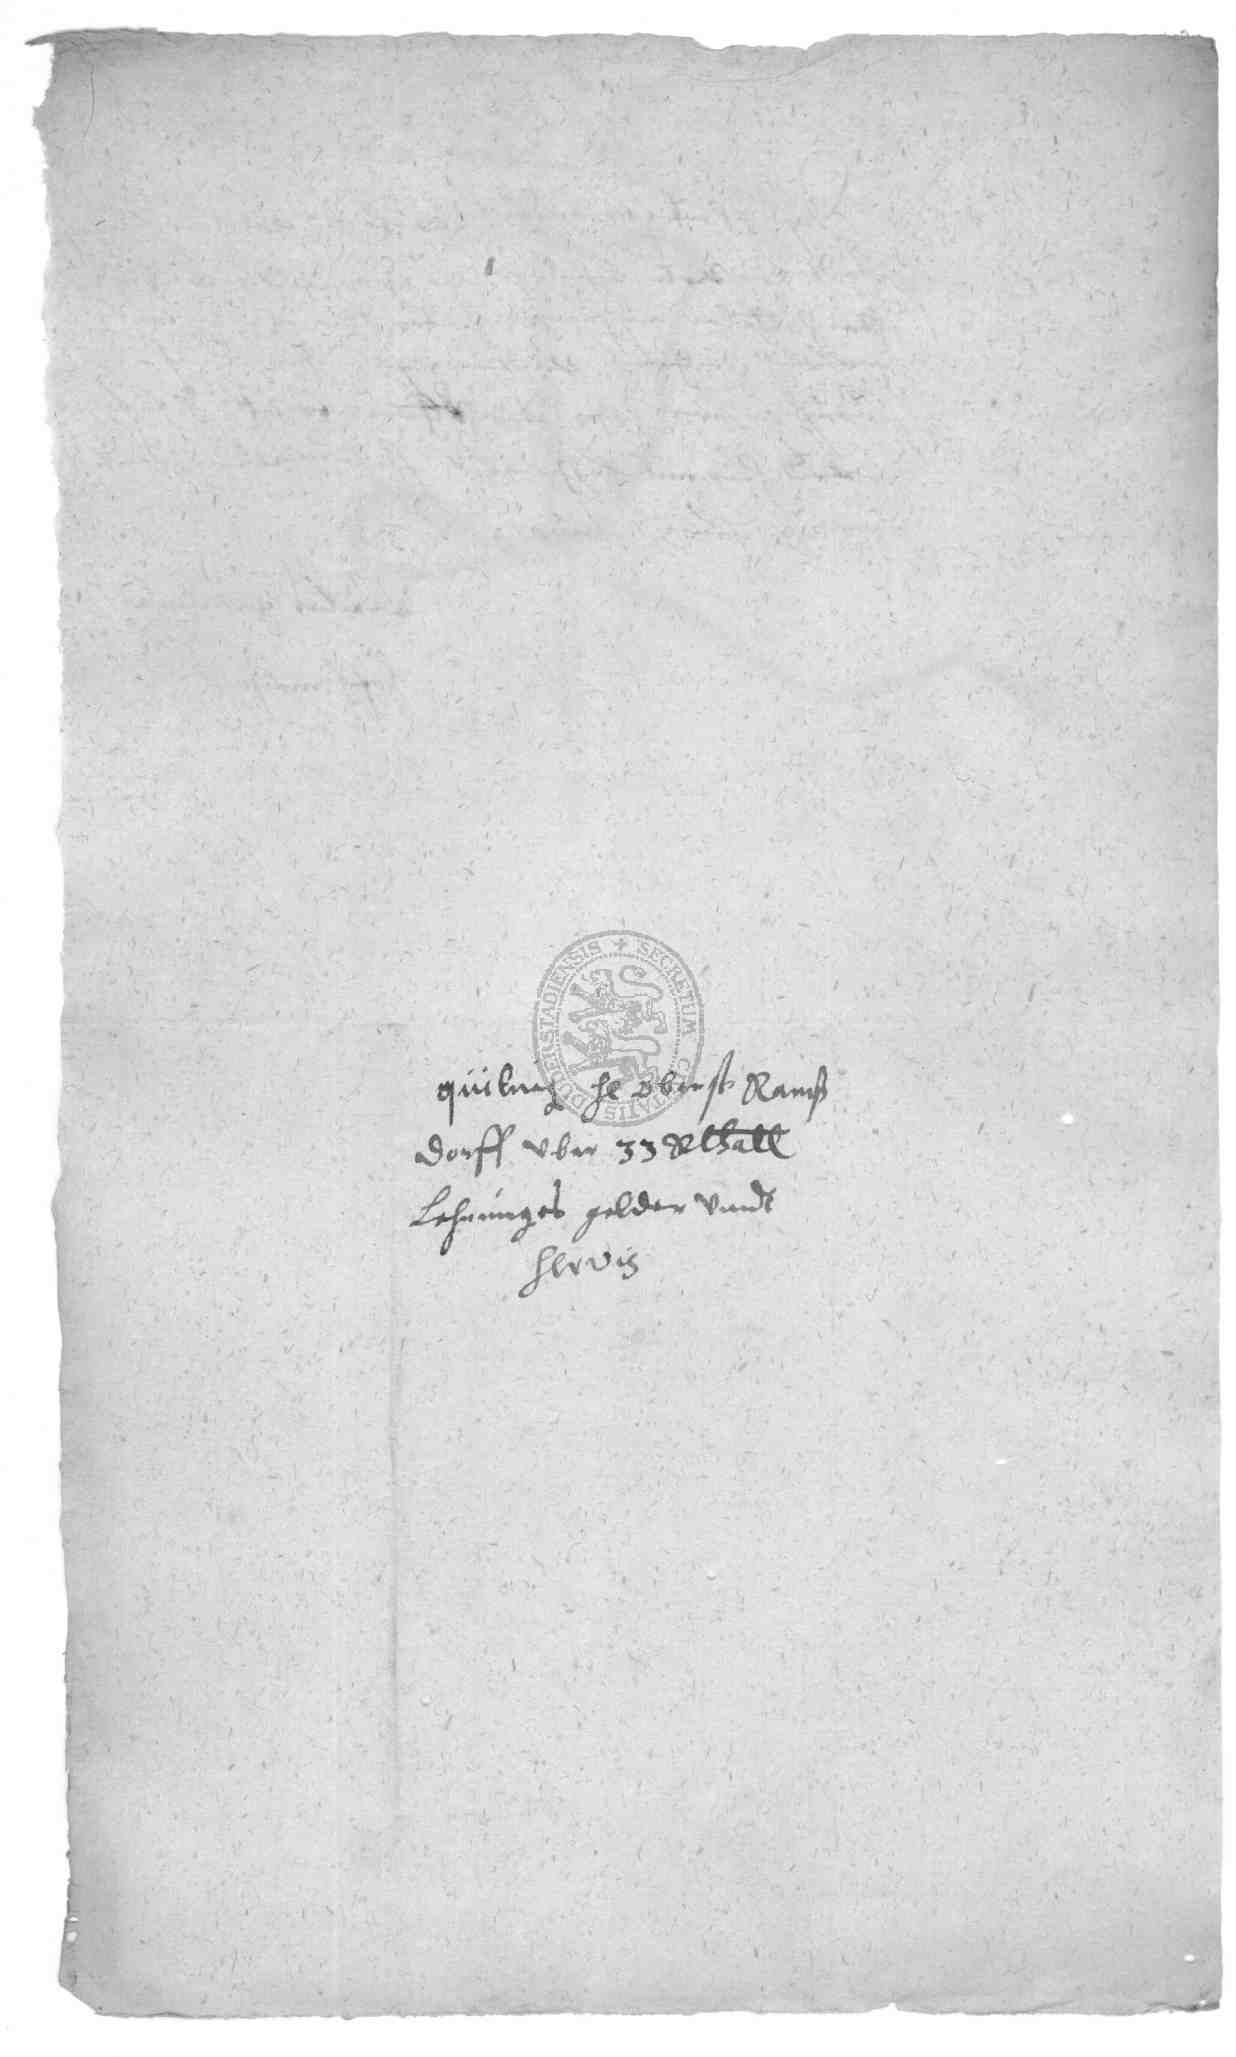 SECRETUM CIVITATIS DUDERSTADIENSIS
quitung H Obrist Ramß
dorff vber 33 Rthall
Lehnunges gelder vndt
Servis